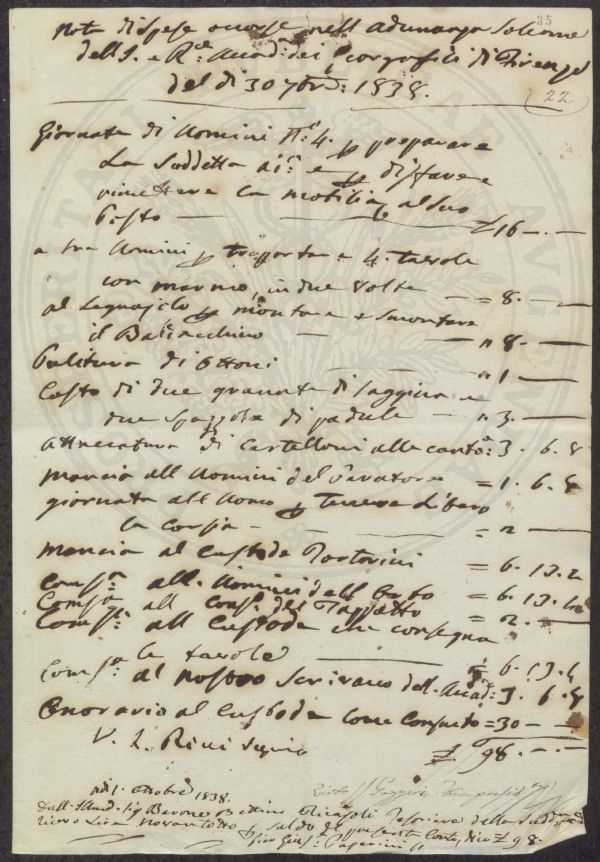 35
Nota di spese occorse nell'adunanza Solenne
dell'I. e R.e Accad.a dei Georgofili di Firenze
del dì 30 7bre: 1838.
22
Giornate di Uomini N.o 4. p preparare
la Suddetta e p disfare e
rimettere la mobilia al suo
Posto — £ 16 -.-
a tre Uomini p trasportare 4. tavole
con marmo, in due volte — = 8. —
al Legnajolo p montare e smontare
il Baldacchino — " 8 —
Pulitura di Ottoni " 1 —
Costo di due granate di saggina e
due spazzole di padule — " 3. —
Attaccatura di Cartelloni alle canto.e: 3. 6. 8
Mancia all Uomini del = 1. 6. 8
giornata all Uomo p Tenere Libero
la corsia — = 2 —
Mancia al Custode Tortorini = 6. 13. 4
Comp.a all. Uomini dell Orto = 6. 13. 4
Comp.a all del Tappeto = 2. —
Comp.a all Custode che consegna
le tavole — = 6. 13. 4
Comp.a al nostro Scrivano dell. Accad.a 3. 6. 8
Onorario al Custode come Consueto = 30 —
V. L. Ridi Segrio £. 98. -.-
adì 1. Ottobre 1838.
Dall. Illmo. Sig Barone Bettino Ricasoli Tesoriere della Sudd.
ricevo Lire novantotto p saldo di presente Conto, dico £ 98.